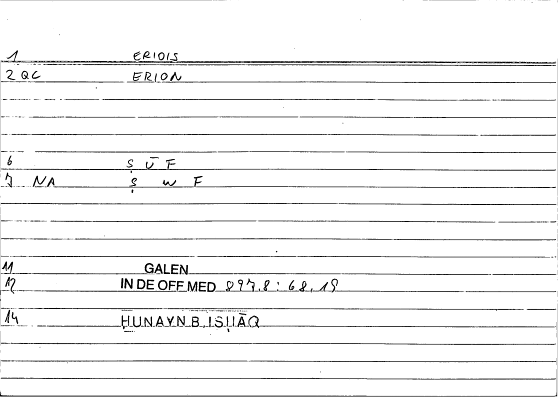 1 ERIOIS
2 QC ERION
6 Ṣ Ū F
7 NA Ṣ W F
11 GALEN
12 IN DE OFF MED 897.8 : 68.19
14 ḤUNAYN B. ISḤĀQ